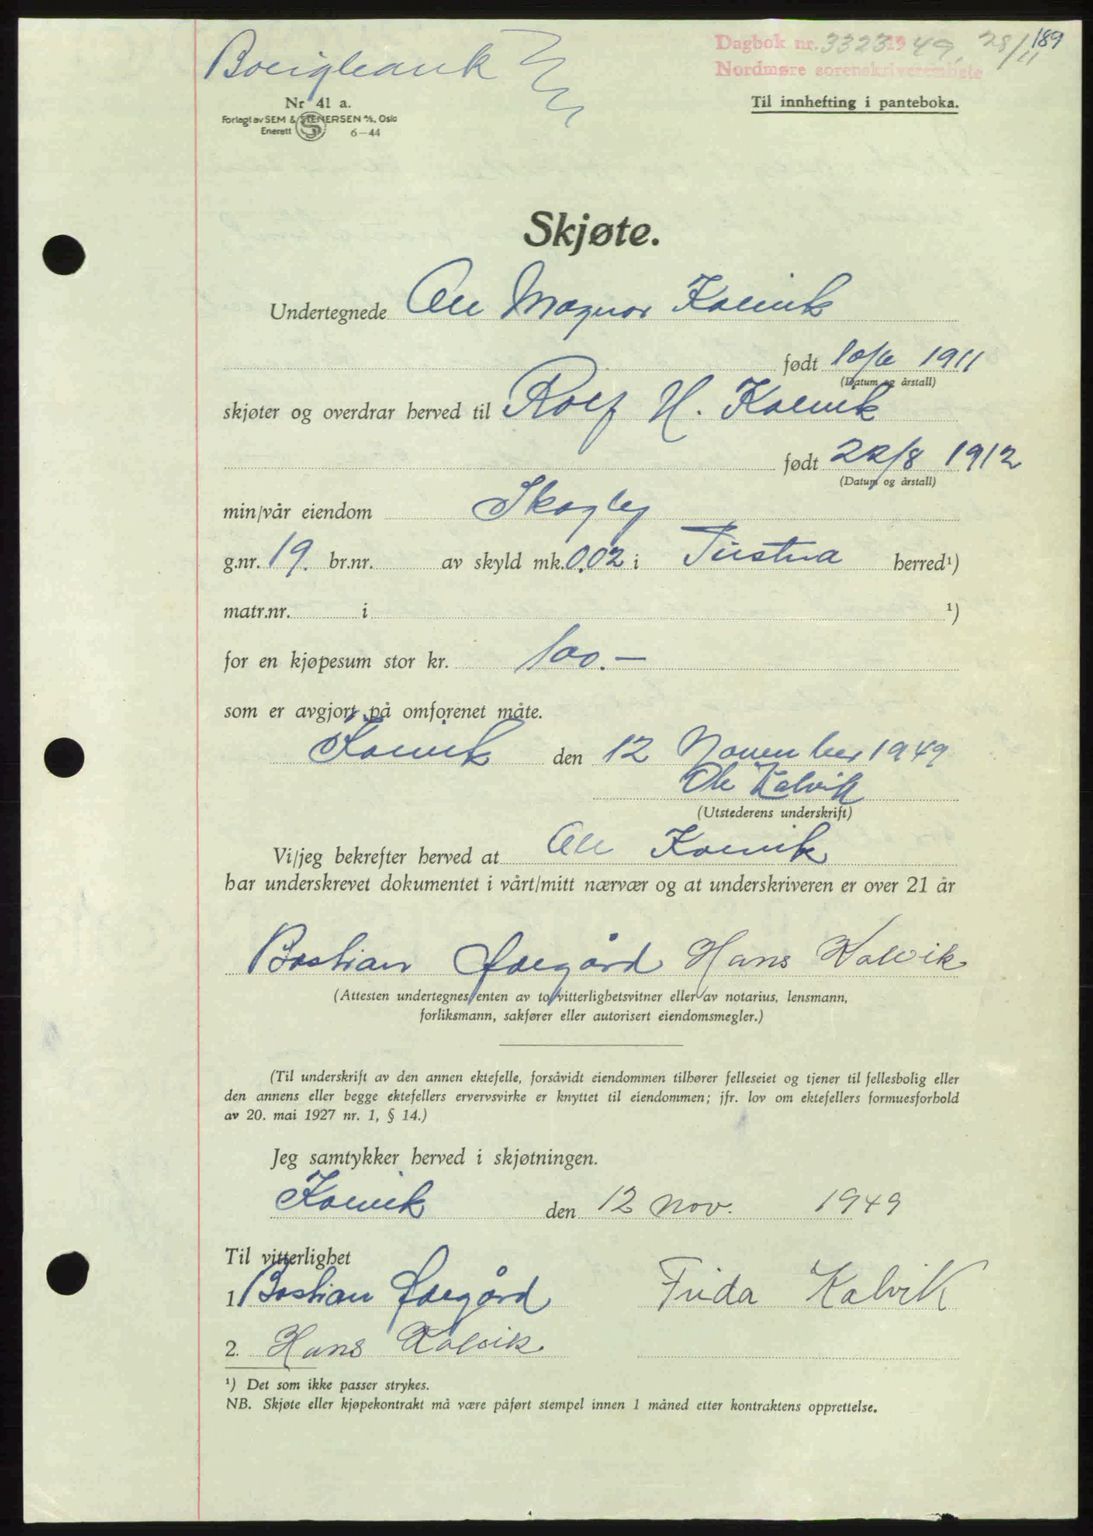 189
Dagbok nr. 3323 1949, 28/11
Nordmøre sorenskriverembete
Nr 41 a.
Forlagt av SEM & STENERSEN A/S, Oslo
Enerett 6—44
Til innhefting i panteboka.
Skjøte.
Undertegnede Ole Magnar Kalvik
født 10/6 1911
(Datum og årstall)
skjøter og overdrar herved til Rolf H. Kalvik
født 22/8 1912
(Datum og årstall)
min/vår eiendom Skogly
g.nr. 19. br.nr. av skyld mk. 0,02 i Tustna herred¹)
matr.nr. i ¹)
for en kjøpesum stor kr. 100.—
som er avgjort på omforenet måte.
Kalvik den 12 November 1949
Ole Kalvik
(Utstederens underskrift)
Vi/jeg bekrefter herved at Ole Kalvik
har underskrevet dokumentet i vårt/mitt nærvær og at underskriveren er over 21 år
Bastian Ødegård Hans Kalvik
(Attesten undertegnes enten av to vitterlighetsvitner eller av notarius, lensmann,
forliksmann, sakfører eller autorisert eiendomsmegler.)
(Til underskrift av den annen ektefelle, forsåvidt eiendommen tilhører felleseiet og tjener til fellesbolig eller
den annens eller begge ektefellers ervervsvirke er knyttet til eiendommen; jfr. lov om ektefellers formuesforhold
av 20. mai 1927 nr. 1, § 14.)
Jeg samtykker herved i skjøtningen.
Kalvik den 12 Nov. 1949
Til vitterlighet
1. Bastian Ødegård Frida Kalvik
2. Hans Kalvik
¹) Det som ikke passer strykes.
NB. Skjøte eller kjøpekontrakt må være påført stempel innen 1 måned etter kontraktens opprettelse.